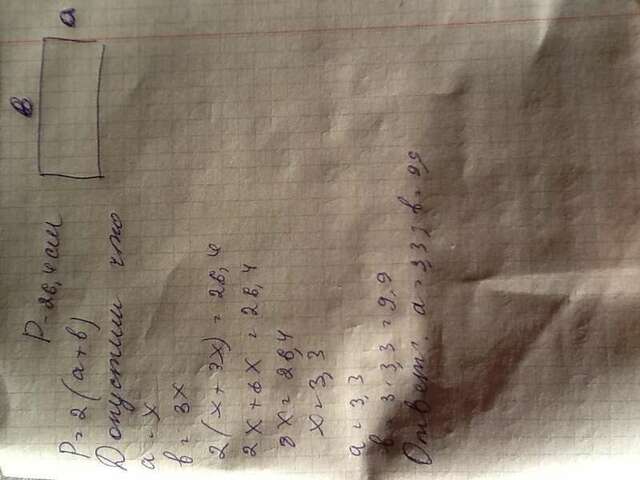 P = 26,4 см
в
P = 2 (a+в)
a
Допустим что
a = x
в = 3x
2(x + 3x) = 26,4
2x + 6x = 26,4
8x = 26,4
x = 3,3
a = 3,3
в = 3·3,3 = 9,9
Ответ: a = 3,3; в = 9,9